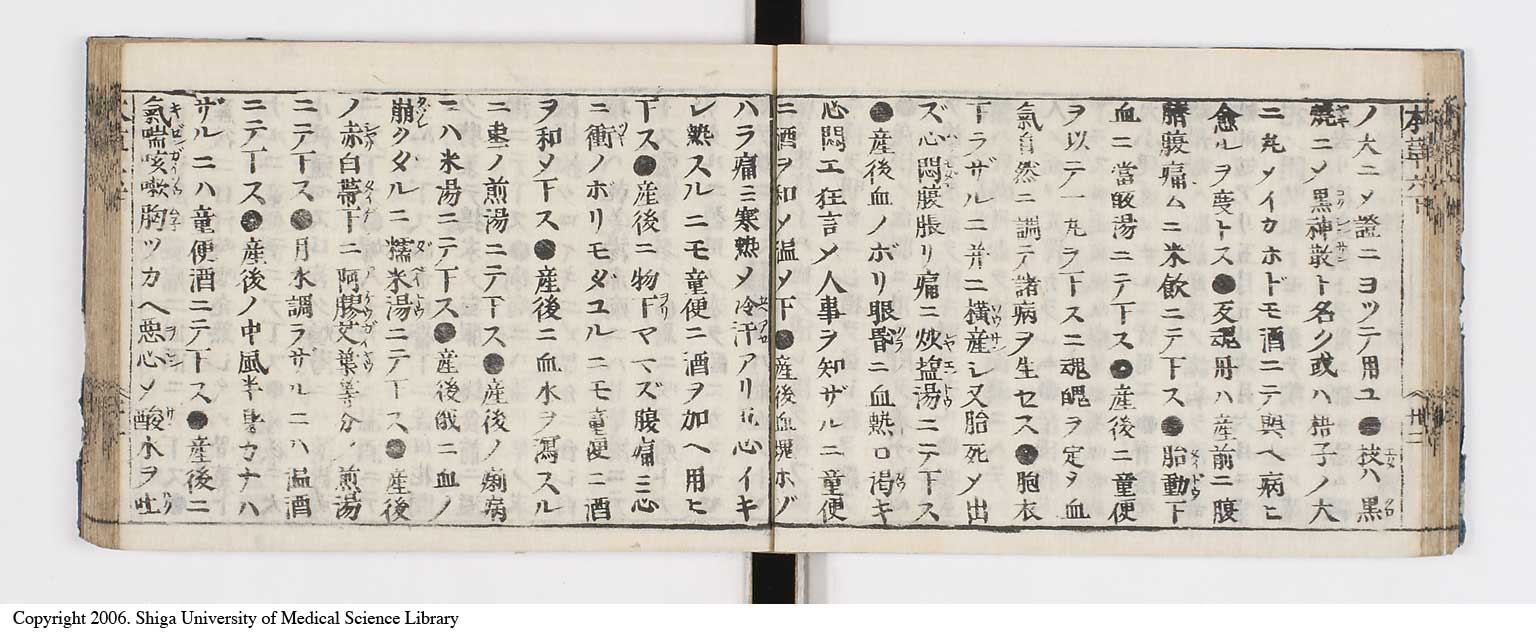 本草六下 廿二
ノ大ニメ證ニヨツテ用ユ●枝ハ黒
焼ニメ黒神散ト名ク或ハ梧子ノ大
ニ丸メイカホドモ酒ニテ與ヘ病ヒ
念ルヲ度トス●反魂丹ハ産前ニ腹
臍腹痛ムニ米飲ニテ下ス●胎動下
血ニ當皈湯ニテ下ス●産後ニ童便
ヲ以テ一丸ヲ下スニ魂魄ヲ定メ血
氣自然ニ調テ諸病ヲ生セス●胞衣
下ラザルニ并ニ横産シ又胎死メ出
ズ心悶腹脹リ痛ニ炒塩湯ニテ下ス
●産後血ノボリ眼昏ニ血熱口渇キ
心悶エ狂言メ人事ヲ知ザルニ童便
ニ酒ヲ和メ温メ下●産後血塊ホゾ
ハラ痛ミ寒熱メ冷汗アリ心イキ
レ熱スルニモ童便ニ酒ヲ加ヘ用ヒ
下ス●産後ニ物下マズ腹痛ミ心
ニ衝ノホリモダユルニモ童便ニ酒
ヲ和メ下ス●産後ニ血水ヲ瀉スル
ニ棗ノ煎湯ニテ下ス●産後ノ痢病
ニハ米湯ニテ下ス●産後俄ニ血ノ
崩クダルニ糯米湯ニテ下ス●産後
ノ赤白帯下ニ阿膠艾葉等分ノ煎湯
ニテ下ス●月水調ラサルニハ温酒
ニテ下ス●産後ノ中風半身カナハ
ザルニハ童便酒ニテ下ス●産後ニ
氣喘咳嗽胸ツカヘ悪心メ酸水ヲ吐